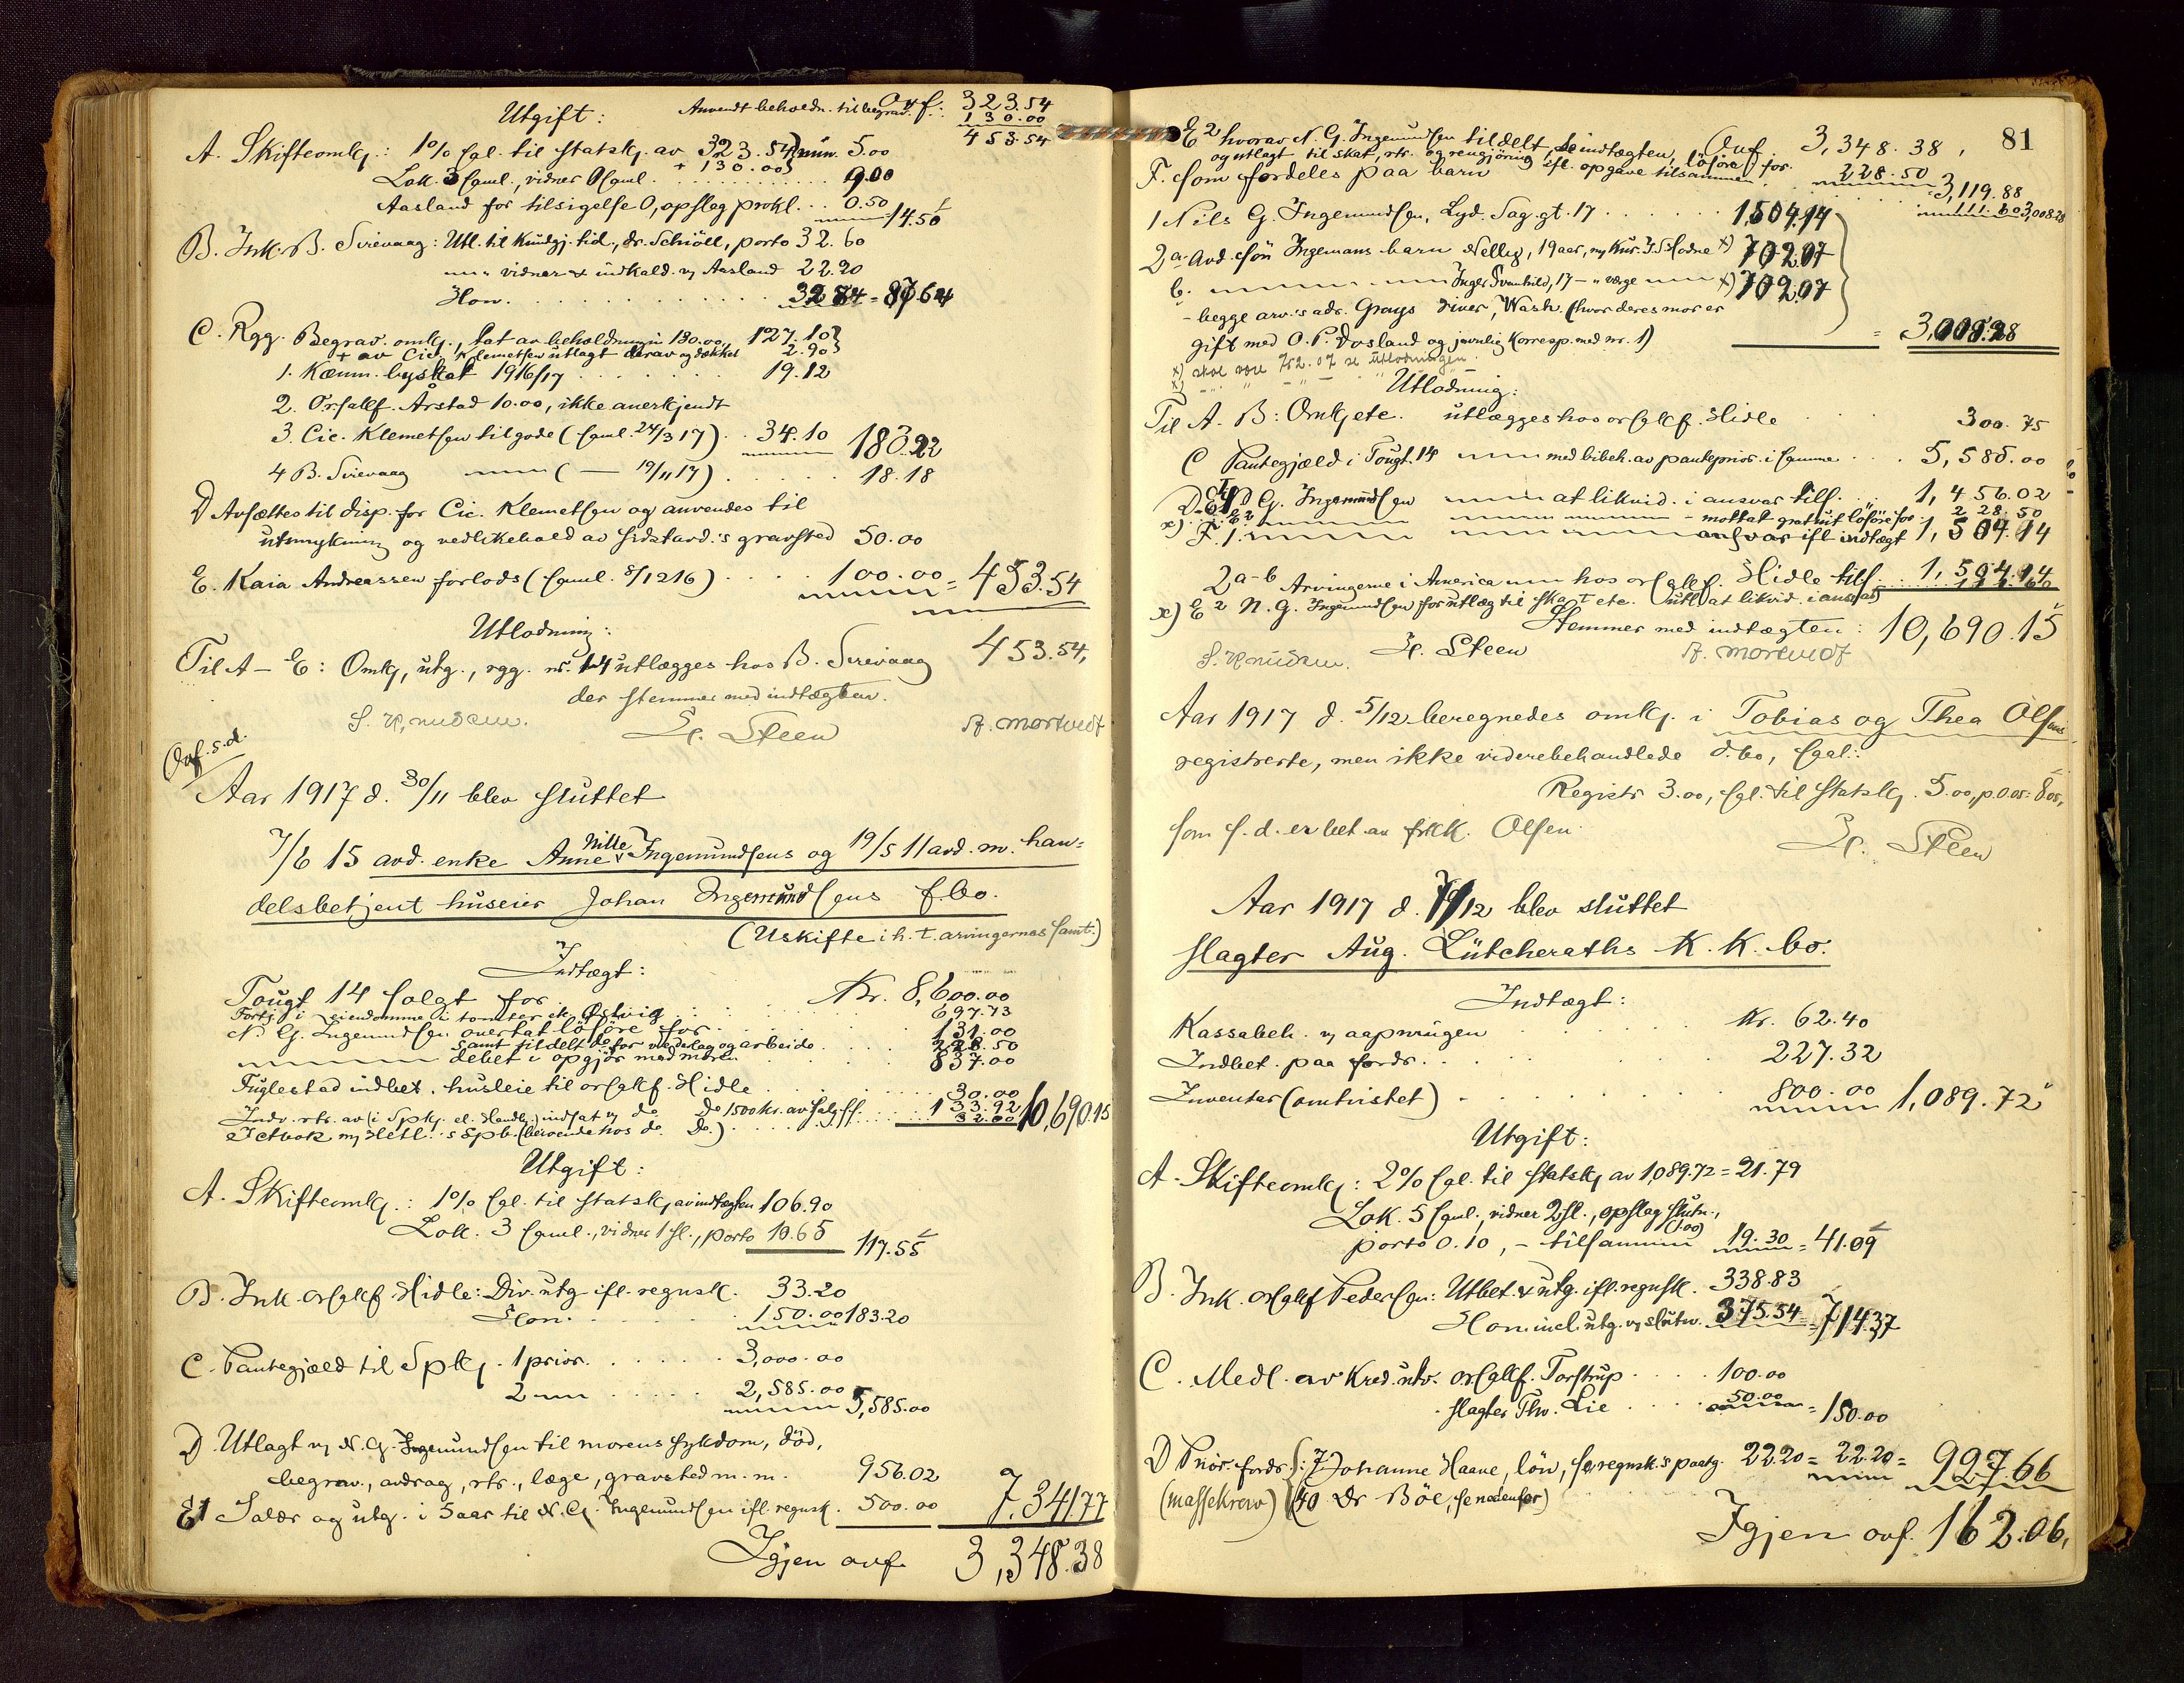 Utgift: Anvendt beholdn. til begrav. Ovf: 323.54
130.00
453.54
A. Skifteomk.: 1% sgl. til statsk. av 323.54 min. 5.00
+ 130.00
Lok. 3 saml., vidner saml. 9.00
Aasland for tilsigelse 0, opslag prokl. 0.50 14.50
B. Ink. B. Sirevaag: Utl. til Kundgj. tid., dr. Schiöll, porto 32.60
vidner & indkald. v/ Aasland 22.20
Hon. 32.84 = 87.64
C. Rgg. Begrav. omk., tat av beholdningen 130.00, 127.10
+ av Cic. Klemetsen utlagt derav og dækket 2.90
1. Kæmn. byskat 1916/17 19.12
2. Orsakf. Årstad 10.00, ikke anerkjendt
3. Cic. Klemetsen tilgode (saml. 24/3 17) 34.10 180.22
4 B. Sirevaag ( — 19/11 17) 18.18
D Avsættes til disp. for Cic. Klemetsen og anvendes til
utsmykning og vedlikehold av sidstavd.'s gravsted 50.00
E. Kaia Andreassen forlods (saml. 8/12 16) 100.00 = 453.54
Utlodning:
Til A - E: Omk, utg., rgg. nr. 1-4 utlægges hos B. Sirevaag 453.54,
der stemmer med indtægten.
S. Knudsen. H. Steen A. Mortvedt
Ovf. s.d.
Aar 1917 d. 30/11 blev sluttet
7/6 15 avd. enke Anne Nille Ingemundsens og 19/5 11 avd. m. han=
delsbetjent huseier Johan Ingemundsens f.bo.
(Uskifte i h. t. arvingernes samt.)
Indtægt:
Tougt. 14 solgt for Kr. 8,600.00
Fortj. i eiendomme i tomter ek. Østvig 697.73
N. G. Ingemundsen overtat löföre for 131.00
samt tildelt do for vederlag og arbeide 228.50
debet i opgjör med moren 837.00
Fuglestad indbet. husleie til orsakf. Hidle 30.00
Indv. rtr. av (i Spk. el. Handb.) indsat v/ do Do 1500 kr. av salg ff. 133.92 10,690.15
1 ctbok m/ Hetl.'s Spb. (beroende hos do. Do.) 32.00
Utgift:
A. Skifteomk.: 1% sgl. til statsk. av indtægten 106.90
Lok. 3 saml., vidner 1 sl., porto 10.65 117.55
B. Ink. orsakf. Hidle: Div. utg. ifl. regnsk. 33.20
Hon. 150.00 183.20
C. Pantegjæld til Spk. 1 prior. 3,000.00
2 2,585.00 5,585.00
D. Utlagt v/ N. G. Ingemundsen til morens sykdom, död,
begrav., avdrag, rtr., læge, gravsted m.m. 956.02
E1 Salær og utg. i 5 aar til N. G. Ingemundsen ifl. regnsk. 500.00 7,341.77
Igjen ovf. 3,348.38
81
E2 hvorav N. G. Ingemundsen tildelt, se indtægten, löföre for Ovf. 3,348.38,
og utlagt til skat, rtr. og rengjöring ifl. opgave tilsammen 228.50 3,119.88
F. som fordeles paa barn 111.60 3,008.28
1 Nils G. Ingemundsen, Lyd. Sag. gt. 17 1,504.14
2a Avd. sön Ingemans barn Nelly, 19 aar, m/ Kur. J. S. Hodne x) 702.07
b. Inger Svanhild, 17 - " værge x) 702.07
- begge arv.'s adr. Grays River, Wash. (hvor deres mor er
gift med O. P. Rosland og jævnlig korresp. med nr. 1) = 3,008.28
x) skal være 752.07 se utlodningen
Utlodning:
Til A. B: Omk. etc. utlægges hos orsakf. Hidle 300.75
C Pantegjæld i Tougt. 14 med bibeh. av panteprior. i samme 5,585.00
D-E1 N. G. Ingemundsen at likvid. i ansvar tils. 1,456.02
x) E2 - mottat gratuit löföre for 228.50
F. 1. ansvar ifl. indtægt 1,504.14
2a-b Arvingerne i America hos orsakf. Hidle tils. 1,504.14
x) E2 N. G. Ingemundsen for utlæg til skat etc. (utl. at likvid. i ansvar) 111.60
Stemmer med indtægten: 10,690.15
S. Knudsen. H. Steen A. Mortvedt
Aar 1917 d. 5/12 beregnedes omk. i Tobias og Thea Olsens
registrerte, men ikke viderebehandlede d.bo, sgl.:
Registr 3.00, sgl. til statsk. 5.00, p. 0.05 = 8.05,
som s. d. er bet. av frkk. Olsen.
H. Steen
Aar 1917 d. /12 blev sluttet
slagter Aug. Lütcheraths K. K. bo.
Indtægt:
Kassabeh. v/ aapningen kr. 62.40
Indbet. paa fordr. 227.32
Inventar (omtvistet) 800.00 1,089.72
Utgift:
A. Skifteomk.: 2% sgl. til statsk. av 1,089.72 = 21.79
Lok. 5 saml., vidner 2 sl., opslag slutn.,
(1.00)
porto 0.10, - tilsammen 19.30 = 41.09
B. Ink. orsakf Pedersen: Utbet. & utg. ifl. regnsk. 338.83
Hon. incl. utg. v/ slutn. 375.54 = 714.37
C. Medl. av kred. utv. orsakf. Torstrup 100.00
slagter Thv. Lie 50.00 = 150.00
D Prior. fordr.: 7 Johanne Haave, lön, se regnsk.'s paateg. 22.20 = 22.20 = 927.66
(massekrav) (40 Dr Böe, se nedenfor)
Igjen ovf. 162.06,